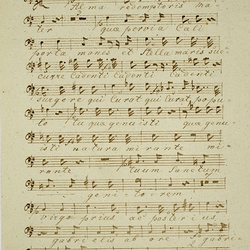 Alma redemptoris ma-
ter qua pervia Cæli
porta manes et Stella maris suc-
curre Cadenti Cadenti Cadenti
surgere qui Curat qui Curat popu-
lo tu qua genuisti qua genu-
isti natura mirante mi-
rante tuum Sanctum
genitorem
Virgo prius ac posterius
gabrielis ab ore gabri